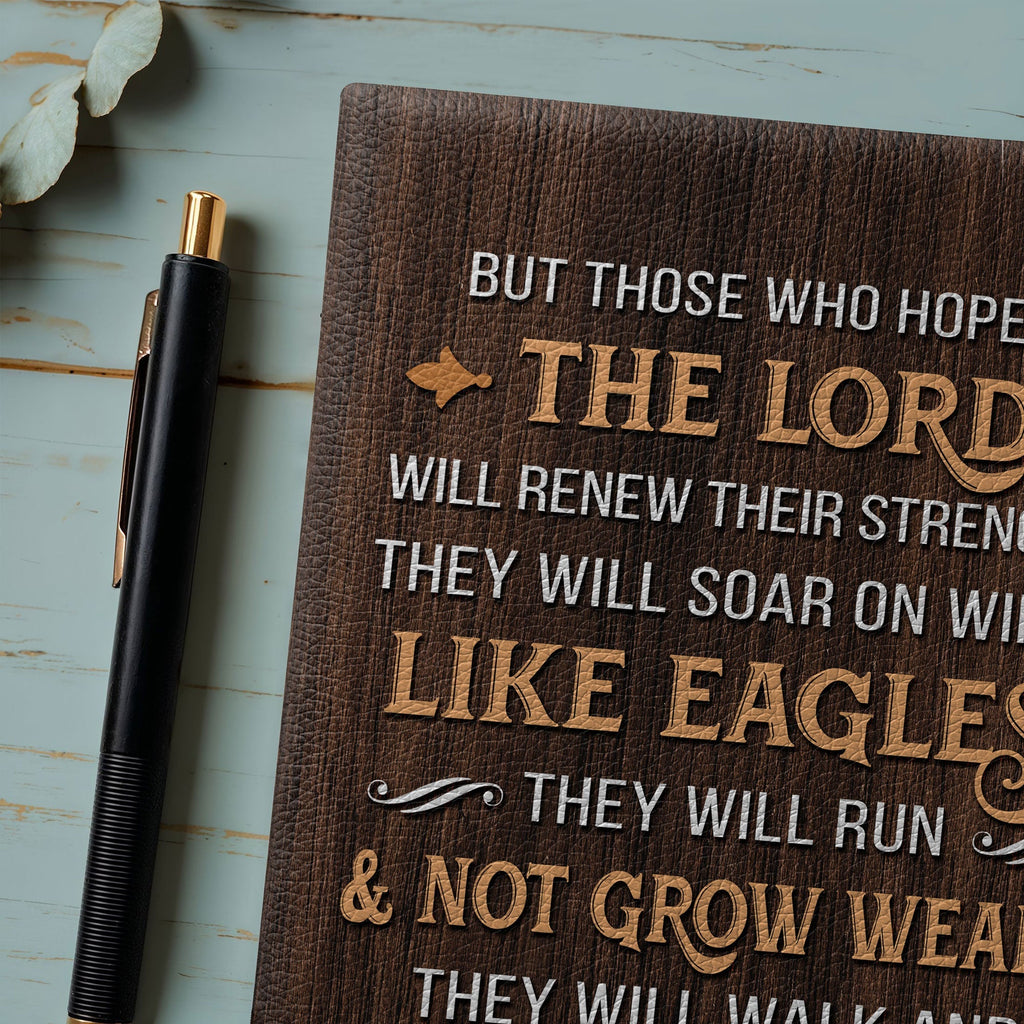 BUT THOSE WHO HOPE
THE LORD
WILL RENEW THEIR STRENG
THEY WILL SOAR ON WI
LIKE EAGLES
THEY WILL RUN
& NOT GROW WEA
THEY WILL WALK AND